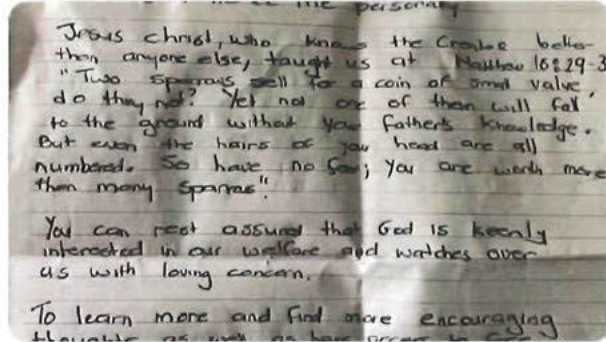 the personally
Jesus christ, who knows the Creator better
than anyone else, taught us at Matthew 10:29-3
"Two Sparrows sell for a coin of small value,
do they not? Yet not one of them will fall
to the ground without your Father's Knowledge.
But even the hairs of your head are all
numbered. So have no fear; You are worth more
than many Sparras".
You can rest assured that God is keenly
interested in our welfare and watches over
us with loving concern.
To learn more and find more encouraging
thoughts as well as have access to